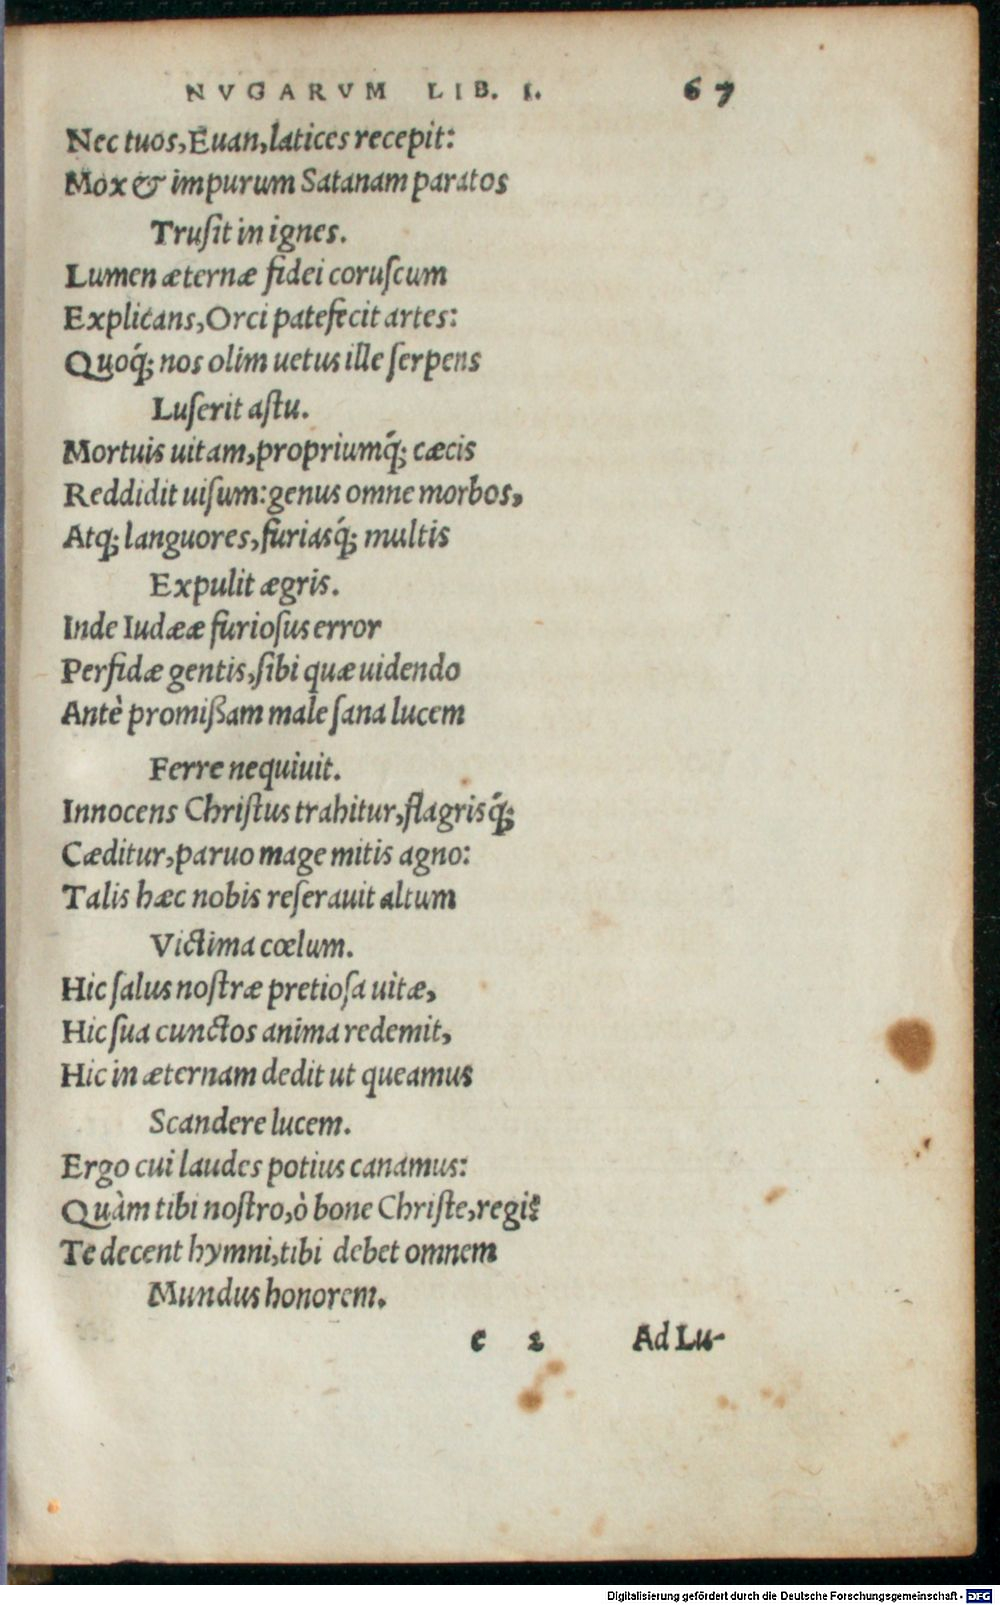 NVGARVM LIB. I. 67
Nec tuos, Euan, latices recepit:
Mox & impurum Satanam paratos
Truſit in ignes.
Lumen æternæ fidei coruſcum
Explicans, Orci patefecit artes:
Quoq́; nos olim uetus ille ſerpens
Luſerit aſtu.
Mortuis uitam, propriumq́; cæcis
Reddidit uiſum: genus omne morbos,
Atq; languores, furiasq́; multis
Expulit ægris.
Inde Iudææ furioſus error
Perfidæ gentis, ſibi quæ uidendo
Antè promiſſam male ſana lucem
Ferre nequiuit.
Innocens Chriſtus trahitur, flagrisq́;
Cæditur, paruo mage mitis agno:
Talis hæc nobis reſerauit altum
Victima cœlum.
Hic ſalus noſtræ pretioſa uitæ,
Hic ſua cunctos anima redemit,
Hic in æternam dedit ut queamus
Scandere lucem.
Ergo cui laudes potius canamus:
Quàm tibi noſtro, ò bone Chriſte, regi?
Te decent hymni, tibi debet omnem
Mundus honorem.
c 2 Ad Lu-
Digitalisierung gefördert durch die Deutsche Forschungsgemeinschaft - DFG